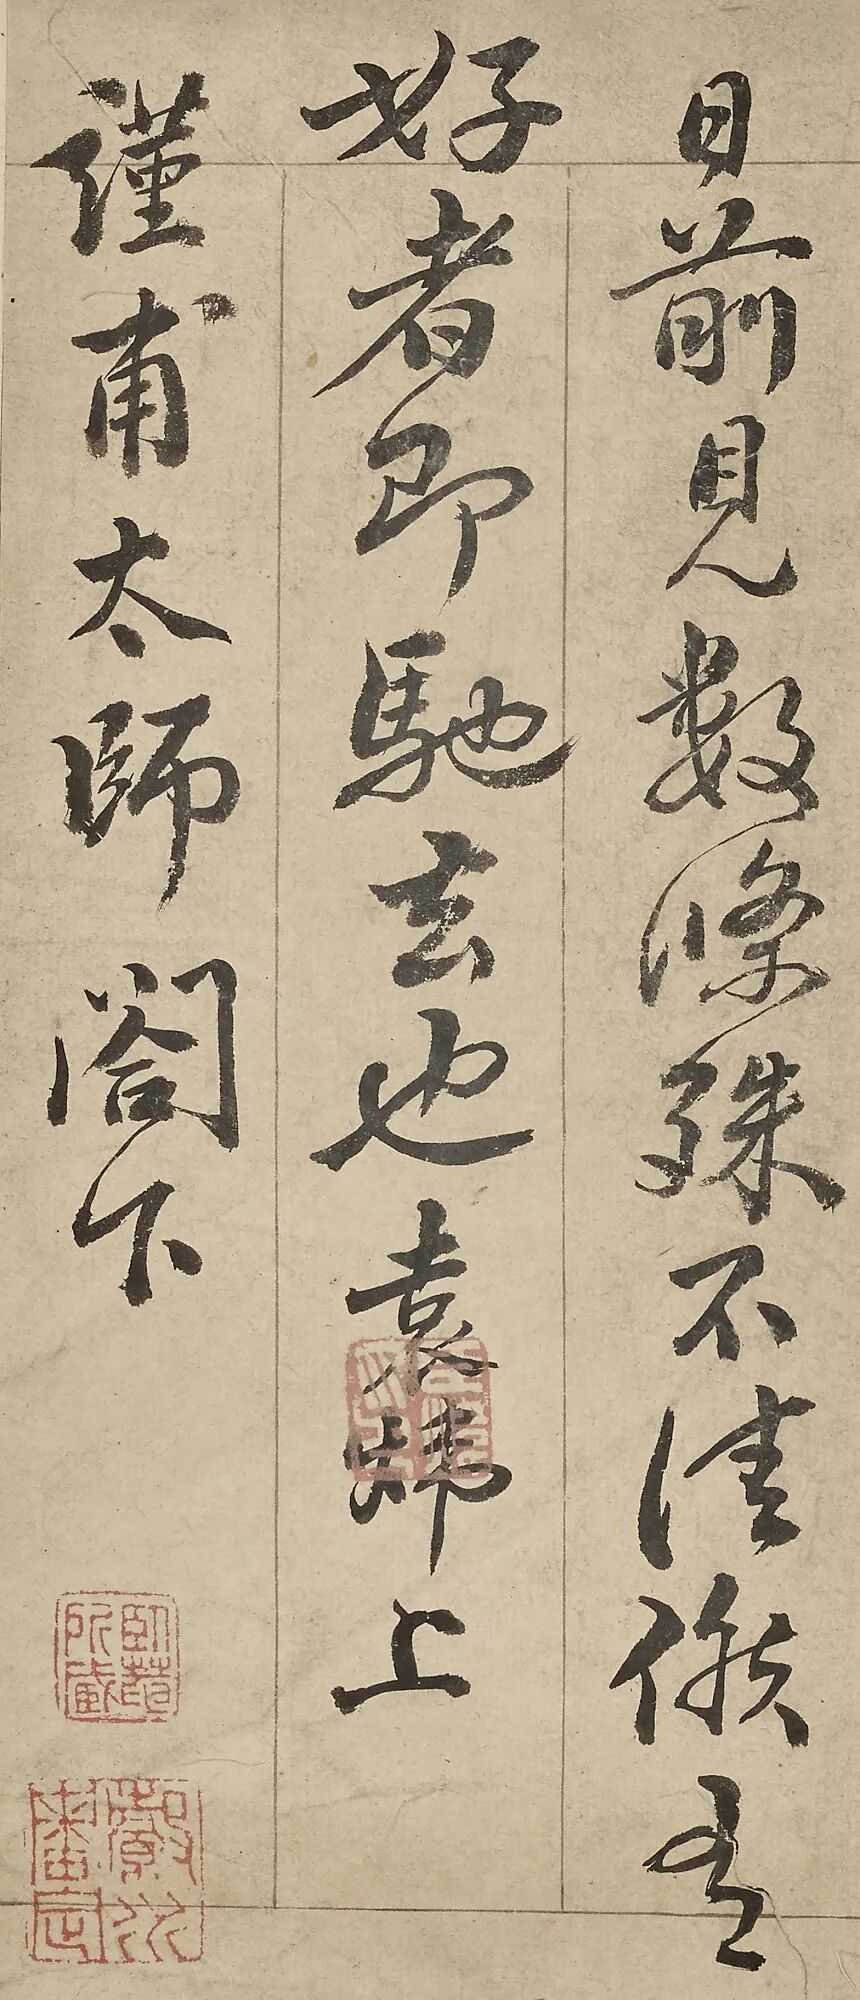 日前見數條殊不佳俟有
好者即馳去也袁煒上
謹甫太師閤下